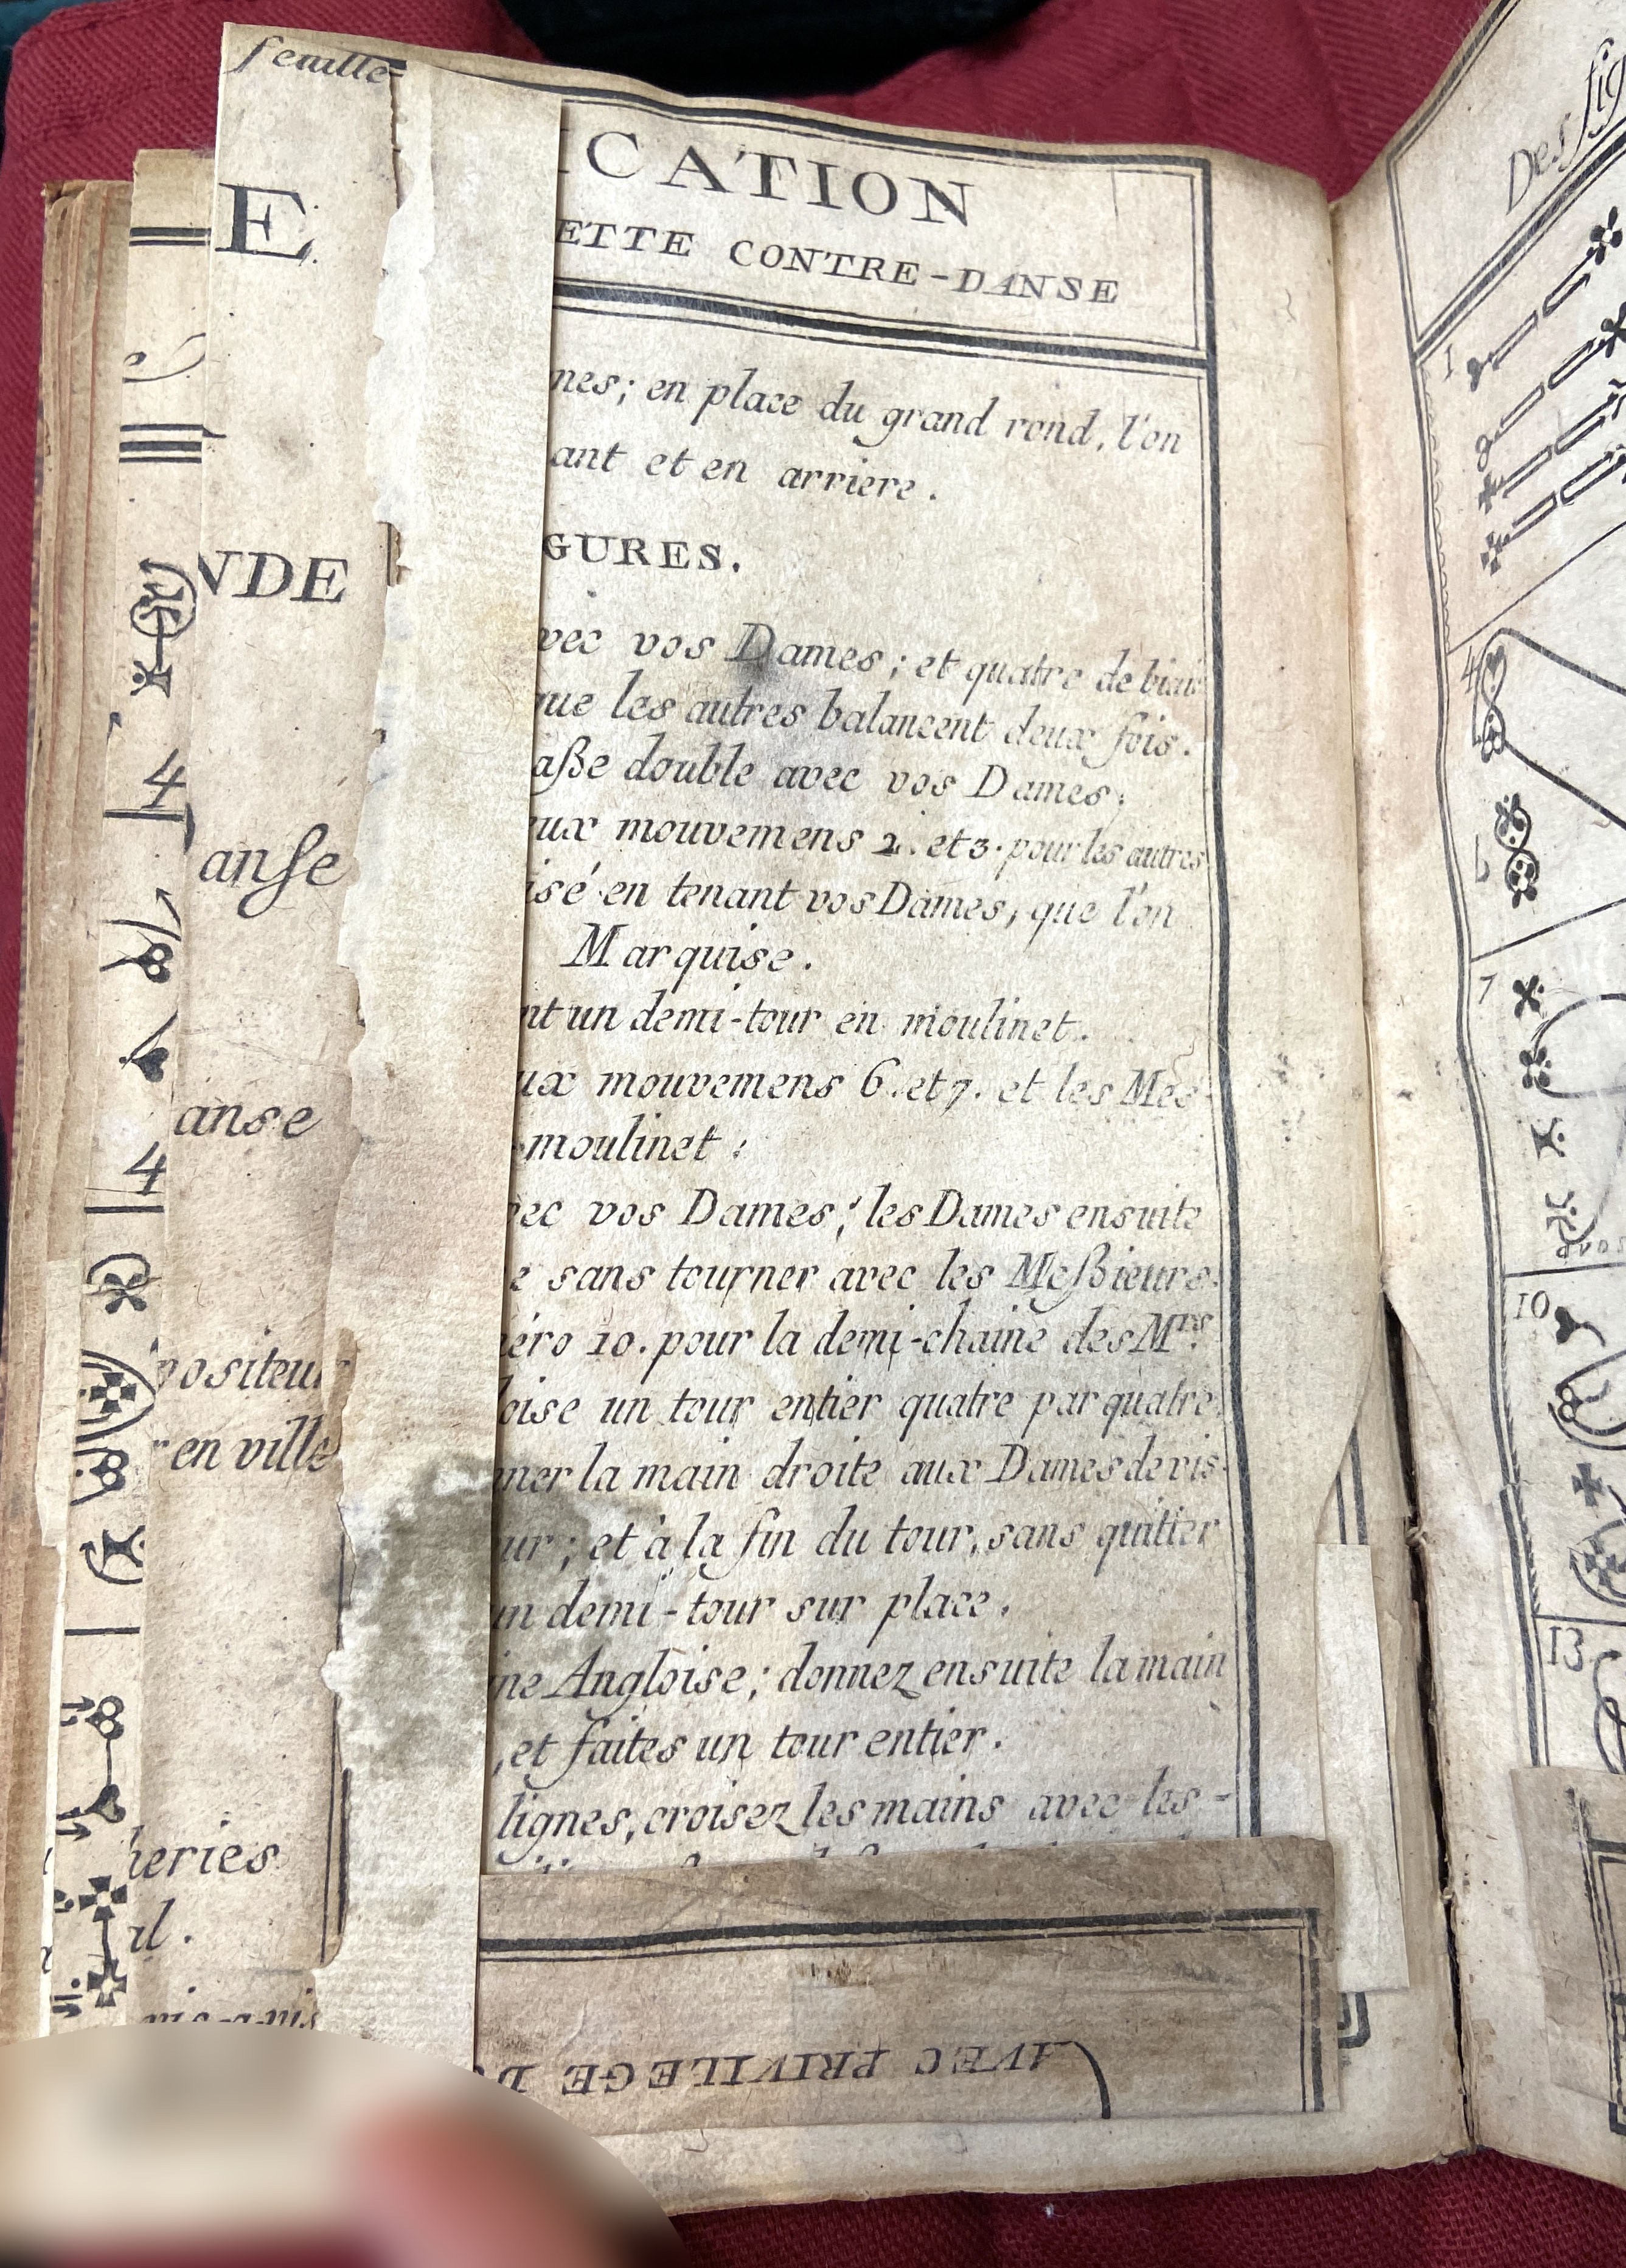 feuille=
E
NDE
anſe
anse
positeur
r en ville
heries
al.
ICATION
ETTE CONTRE-DANSE
nes; en place du grand rond, l'on
ant et en arriere.
GURES.
vec vos Dames; et quatre de biais
que les autres balancent deux fois.
aße double avec vos Dames.
aux mouvemens 2. et 3. pour les autres
isé en tenant vos Dames, que l'on
Marquise.
nt un demi-tour en moulinet.
ux mouvemens 6. et 7. et les Mes-
moulinet:
vec vos Dames; les Dames ensuite
e sans tourner avec les Meßieurs.
éro 10. pour la demi-chaine des Mrs.
oise un tour entier quatre par quatre
ner la main droite aux Dames de vis-
ur; et à la fin du tour, sans quitter
un demi-tour sur place.
ne Angloise; donnez ensuite la main
, et faites un tour entier.
lignes, croisez les mains avec les-
AVEC PRIVILEGE D
4
4
Des fig
1
4
7
10
13